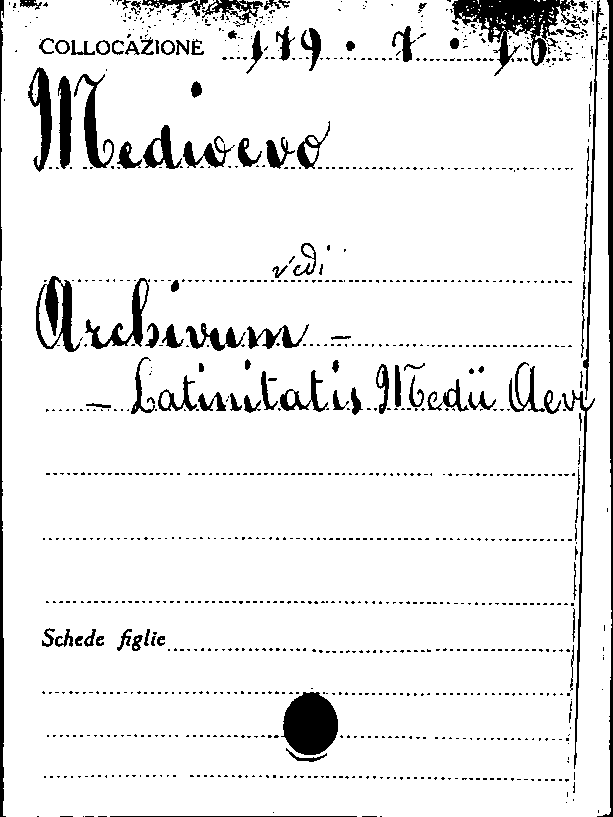 COLLOCAZIONE 179 . 7 . 10
Medioevo
vedi
Archivum -
- Latinitatis Medii Aevi
Schede figlie